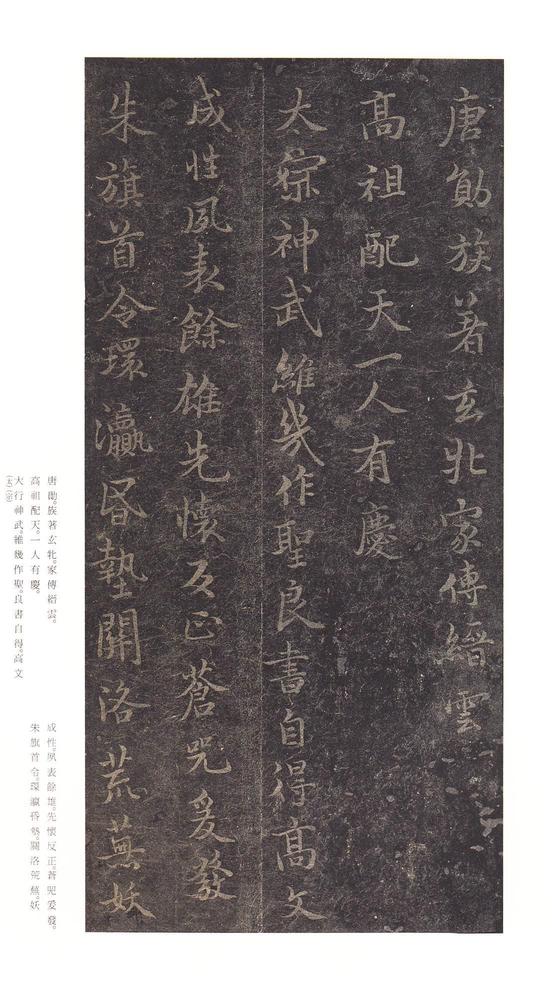 唐勛族著玄牝家傳縉雲
高祖配天一人有慶
太宗神武維幾作聖良書自得高文
成性夙表餘雄先懷反正蒼兕爰發
朱旗首令環瀛昏墊關洛荒蕪妖
唐勛。族著玄牝。家傳縉雲。
高祖配天。一人有慶。
大行神武。維幾作聖。良書自得。高文
(太)(宗)
成性。夙表餘雄。先懷反正。蒼兕爰發。
朱旗首令。環瀛昏墊。關洛荒蕪。妖